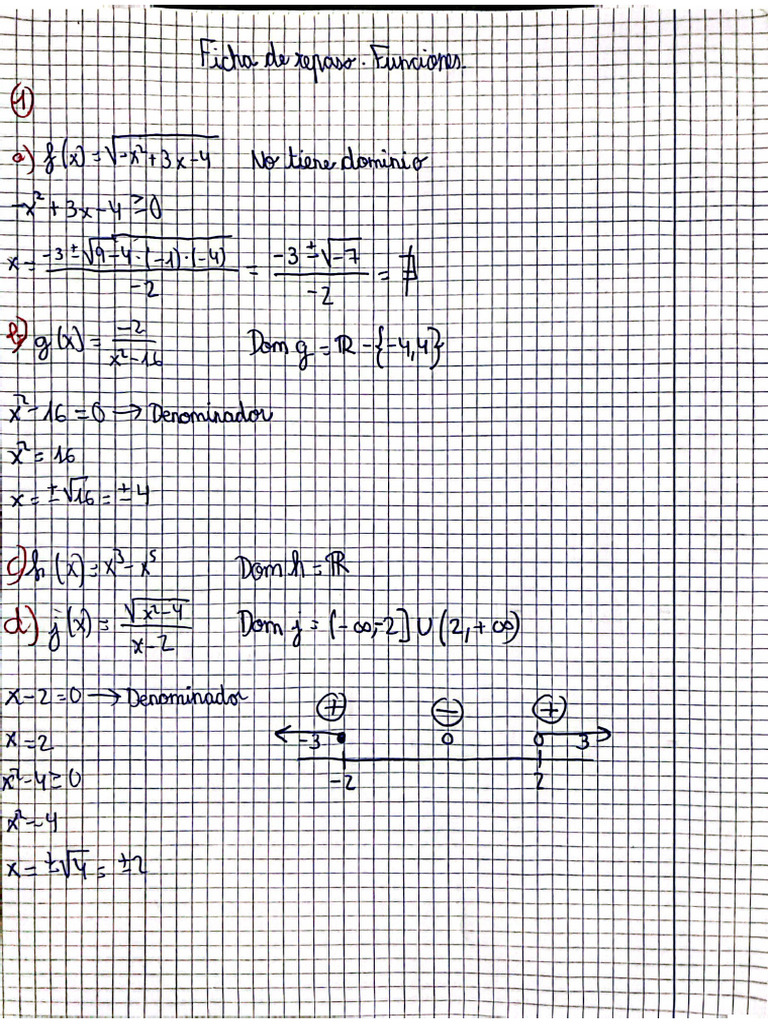 Ficha de repaso. Funciones.
1
a) f(x) = √(-x²+3x-4) No tiene dominio
-x²+3x-4 ≥ 0
x = (-3 ± √(9-4·(-1)·(-4)))/-2 = (-3 ± √-7)/-2 = ∄
b) g(x) = -2/(x²-16) Dom g = ℝ - {-4,4}
x²-16 = 0 → Denominador
x² = 16
x = ±√16 = ±4
c) h(x) = x³ - x⁵ Dom h = ℝ
d) j(x) = √(x²-4)/(x-2) Dom j = (-∞,-2] ∪ (2,+∞)
x-2 = 0 → Denominador
+ - +
x = 2
-3 0 3
x²-4 ≥ 0
-2 2
x² = 4
x = ±√4 = ±2